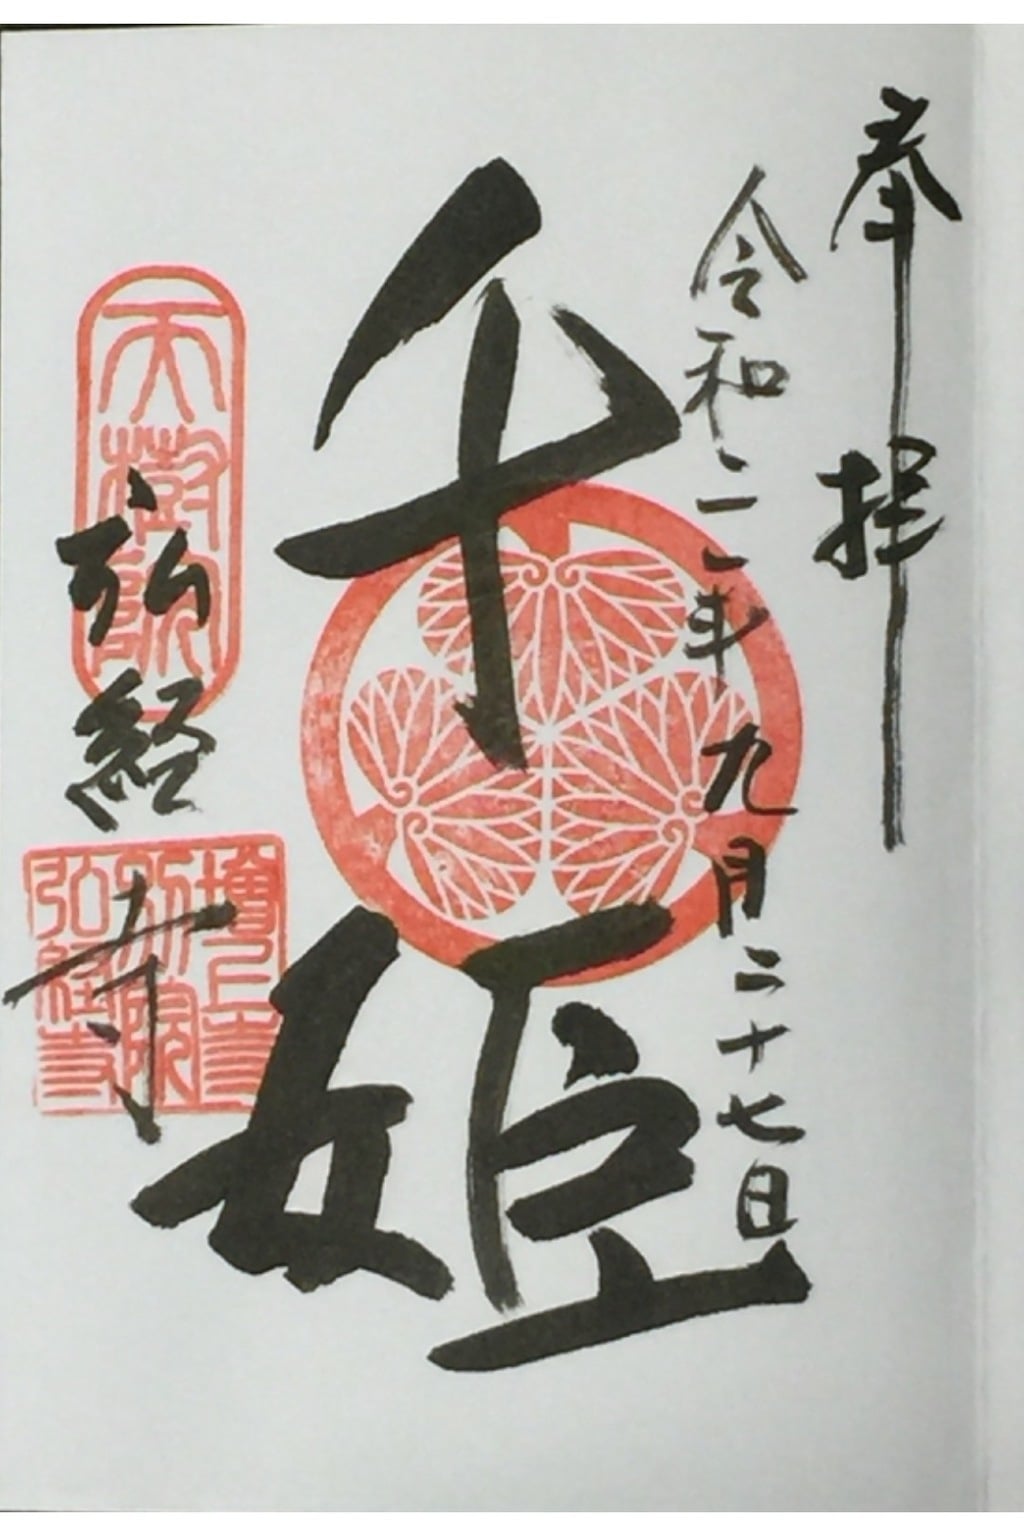 奉拝
令和二年九月二十七日
千姫
天樹院
弘経寺
増上寺
別院
弘経寺